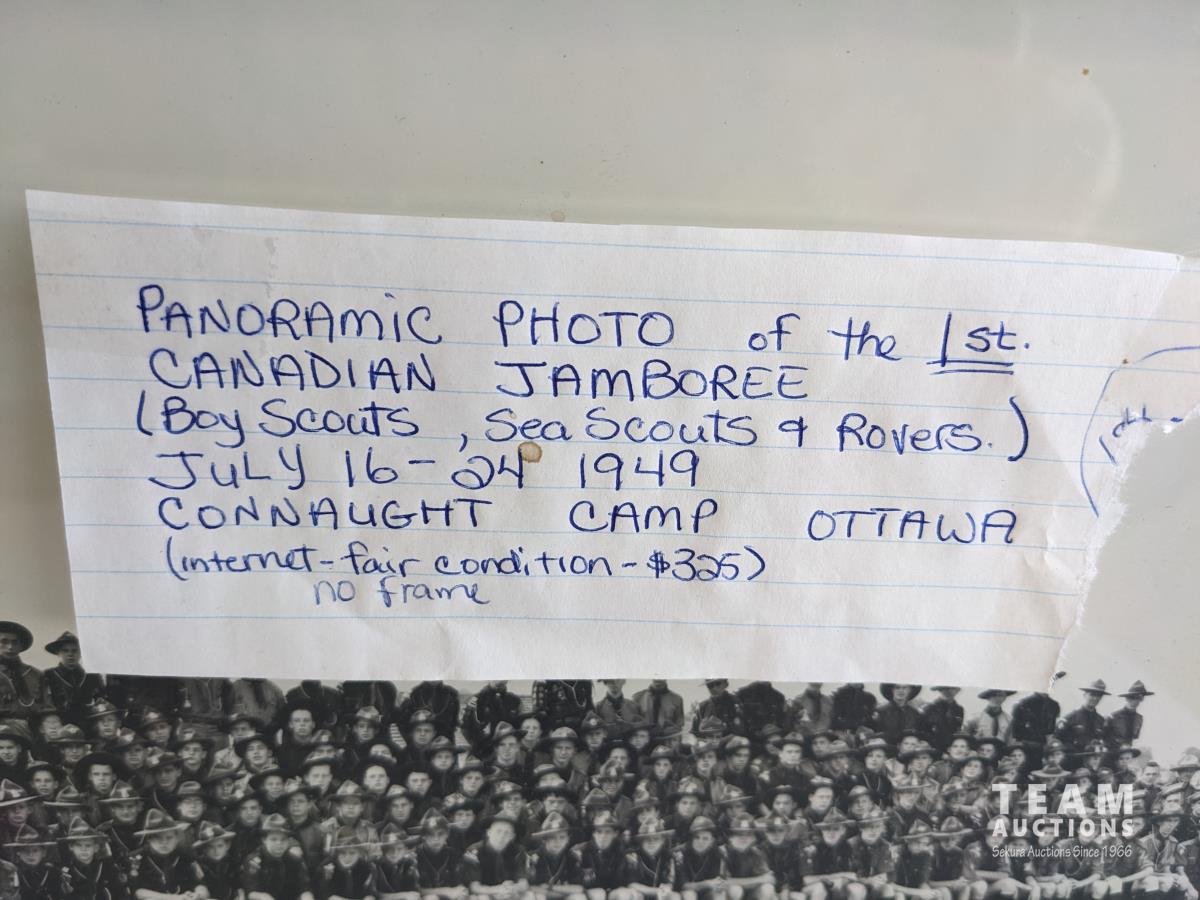 PANORAMIC PHOTO of the 1st.
CANADIAN JAMBOREE
(Boy Scouts, Sea Scouts & Rovers.)
JULY 16-24 1949
CONNAUGHT CAMP OTTAWA
(internet-fair condition-$325)
no frame
TEAM
AUCTIONS
Sekura Auctions Since 1966